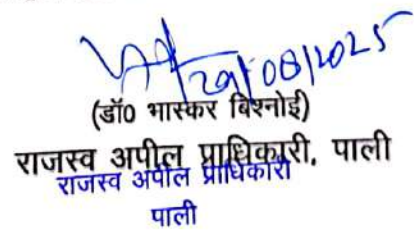 29/08/2025
(डॉ0 भास्कर बिश्नोई)
राजस्व अपील प्राधिकारी, पाली
राजस्व अपील प्राधिकारी
पाली